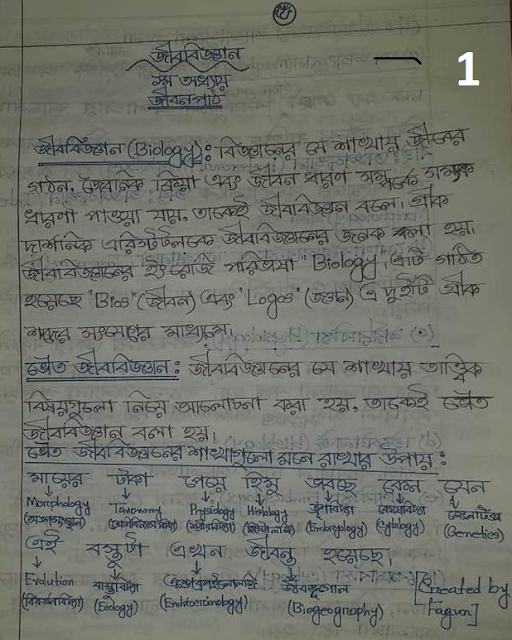 1
জীববিজ্ঞান
১ম অধ্যায়
জীবনপাঠ
জীববিজ্ঞান (Biology): বিজ্ঞানের যে শাখায় জীবের
গঠন, জৈবনিক ক্রিয়া এবং জীবন ধারণ সম্পর্কে সম্যক
ধারণা পাওয়া যায়, তাকেই জীববিজ্ঞান বলে। গ্রীক
দার্শনিক এরিস্টটলকে জীববিজ্ঞানের জনক বলা হয়।
জীববিজ্ঞানের ইংরেজি পরিভাষা "Biology", এটি গঠিত
হয়েছে "Bios" (জীবন) এবং "Logos" (জ্ঞান) এ দুইটি গ্রীক
শব্দের সংযোগের মাধ্যমে।
ভৌত জীববিজ্ঞান: জীববিজ্ঞানের যে শাখায় তাত্ত্বিক
বিষয়গুলো নিয়ে আলোচনা করা হয়, তাকেই ভৌত
জীববিজ্ঞান বলা হয়।
ভৌত জীববিজ্ঞানের শাখাগুলো মনে রাখার উপায়:
মায়ের টাকা পেয়ে হিমু ভাবছে কেন যেন
Morphology Taxonomy Physiology Histology ভ্রূণবিদ্যা কোষবিদ্যা জেনেটিক্স
(Embryology) (Cytology) (Genetics)
এই বস্তুটা এখন জীবন্ত হয়েছে।
Evolution বাস্তুবিদ্যা এন্ডোক্রাইনোলজি জীবভূগোল [Created by
(বিবর্তনবিদ্যা) (Ecology) (Endocrinology) (Biogeography) Fagun]